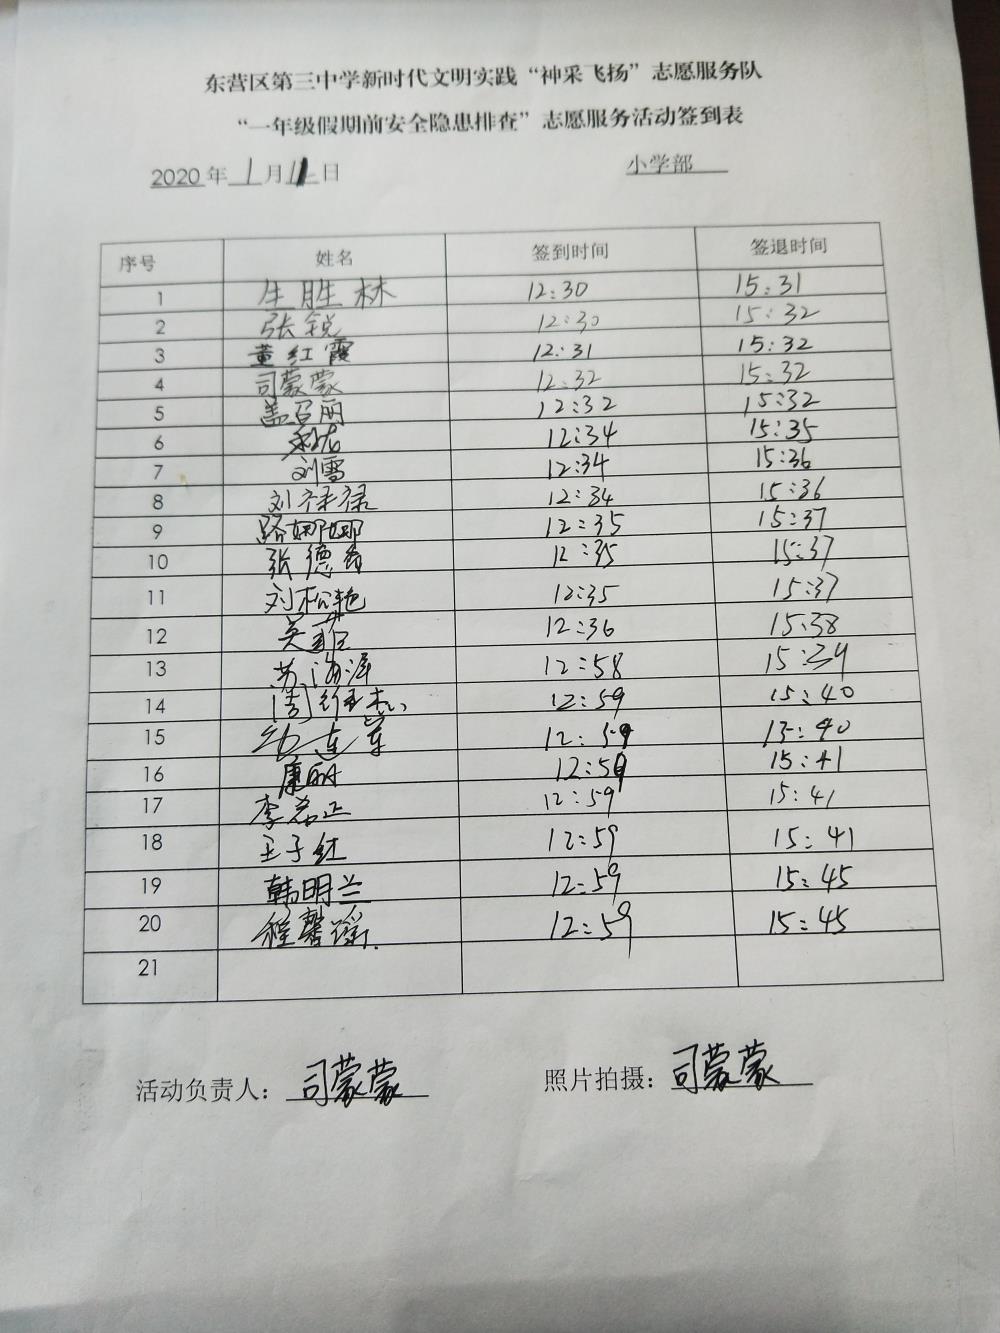 东营区第三中学新时代文明实践“神采飞扬”志愿服务队
“一年级假期前安全隐患排查”志愿服务活动签到表
2020年 1月11日 小学部
序号 姓名 签到时间 签退时间
1 生胜林 12:30 15:31
2 张锐 12:30 15:32
3 董红霞 12:31 15:32
4 司蒙蒙 12:32 15:32
5 盖召丽 12:32 15:32
6 12:34 15:35
7 刘雪 12:34 15:36
8 刘禄禄 12:34 15:36
9 路娜娜 12:35 15:37
10 张德香 12:35 15:37
11 刘松艳 12:35 15:37
12 吴菲 12:36 15:38
13 苏海洋 12:58 15:39
14 12:59 15:40
15 12:59 15:40
16 康丽 12:59 15:41
17 李若正 12:59 15:41
18 王子红 12:59 15:41
19 韩明兰 12:59 15:45
20 程馨瑶 12:59 15:45
21
活动负责人：司蒙蒙 照片拍摄：司蒙蒙